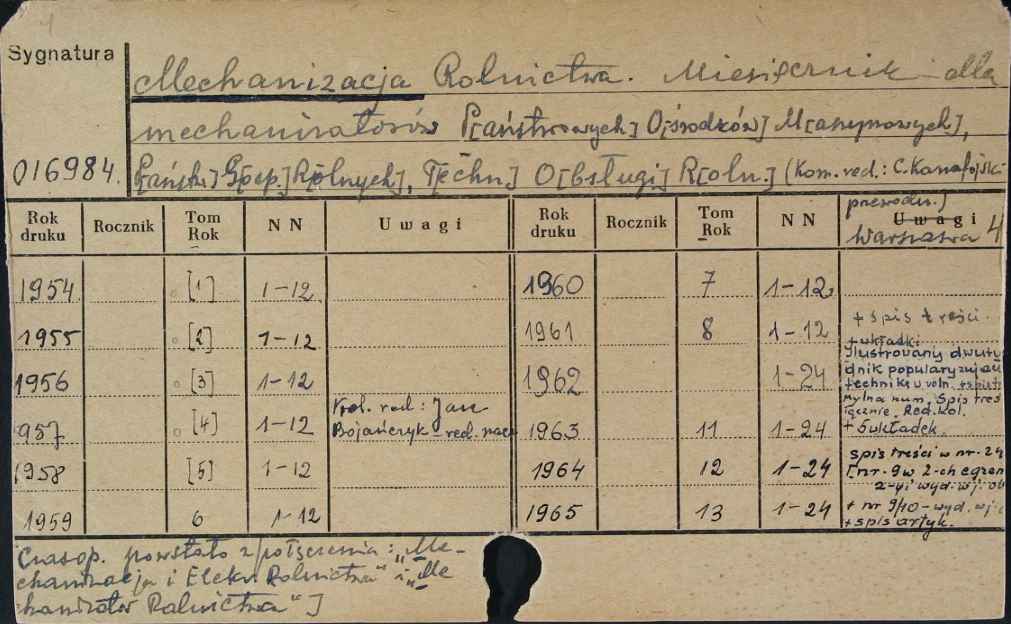 Sygnatura
Mechanizacja Rolnictwa. Miesięcznik dla
mechanizatorów P[aństwowych] O[środków] M[aszynowych],
016984.
Państw] Gosp.] Rolnych], Techn.] O[bsługi] R[oln.] (Kom. red.: C. Kanafojski
przewodn.]
Warszawa 4
Rok druku Rocznik Tom Rok NN Uwagi Rok druku Rocznik Tom Rok NN Uwagi
1954 [1] 1-12 1960 7 1-12
1955 [2] 1-12 1961 8 1-12 + spis treści.
1956 [3] 1-12 1962 1-24 + wkładki
Ilustrowany dwuty
dnik popularyzujący
technikę w roln. + spis tr
Mylna num. Spis treś
Red. kol.
957 [4] 1-12 Kol. red: Jan
Bojańczyk - red. nacz 1963 11 1-24 + 5 wkładek.
1958 [5] 1-12 1964 12 1-24 spis treści w nr. 24
[nr. 9 w 2-ch egzem
2-gi wyd.
1959 6 1-12 1965 13 1-24 + nr 9/10 - wyd.
+ spis artyk.
Czasop. powstało z połączenia: „Me-
chanizacja i Elektr. Rolnictwa" i „Me
chanizator Rolnictwa"]